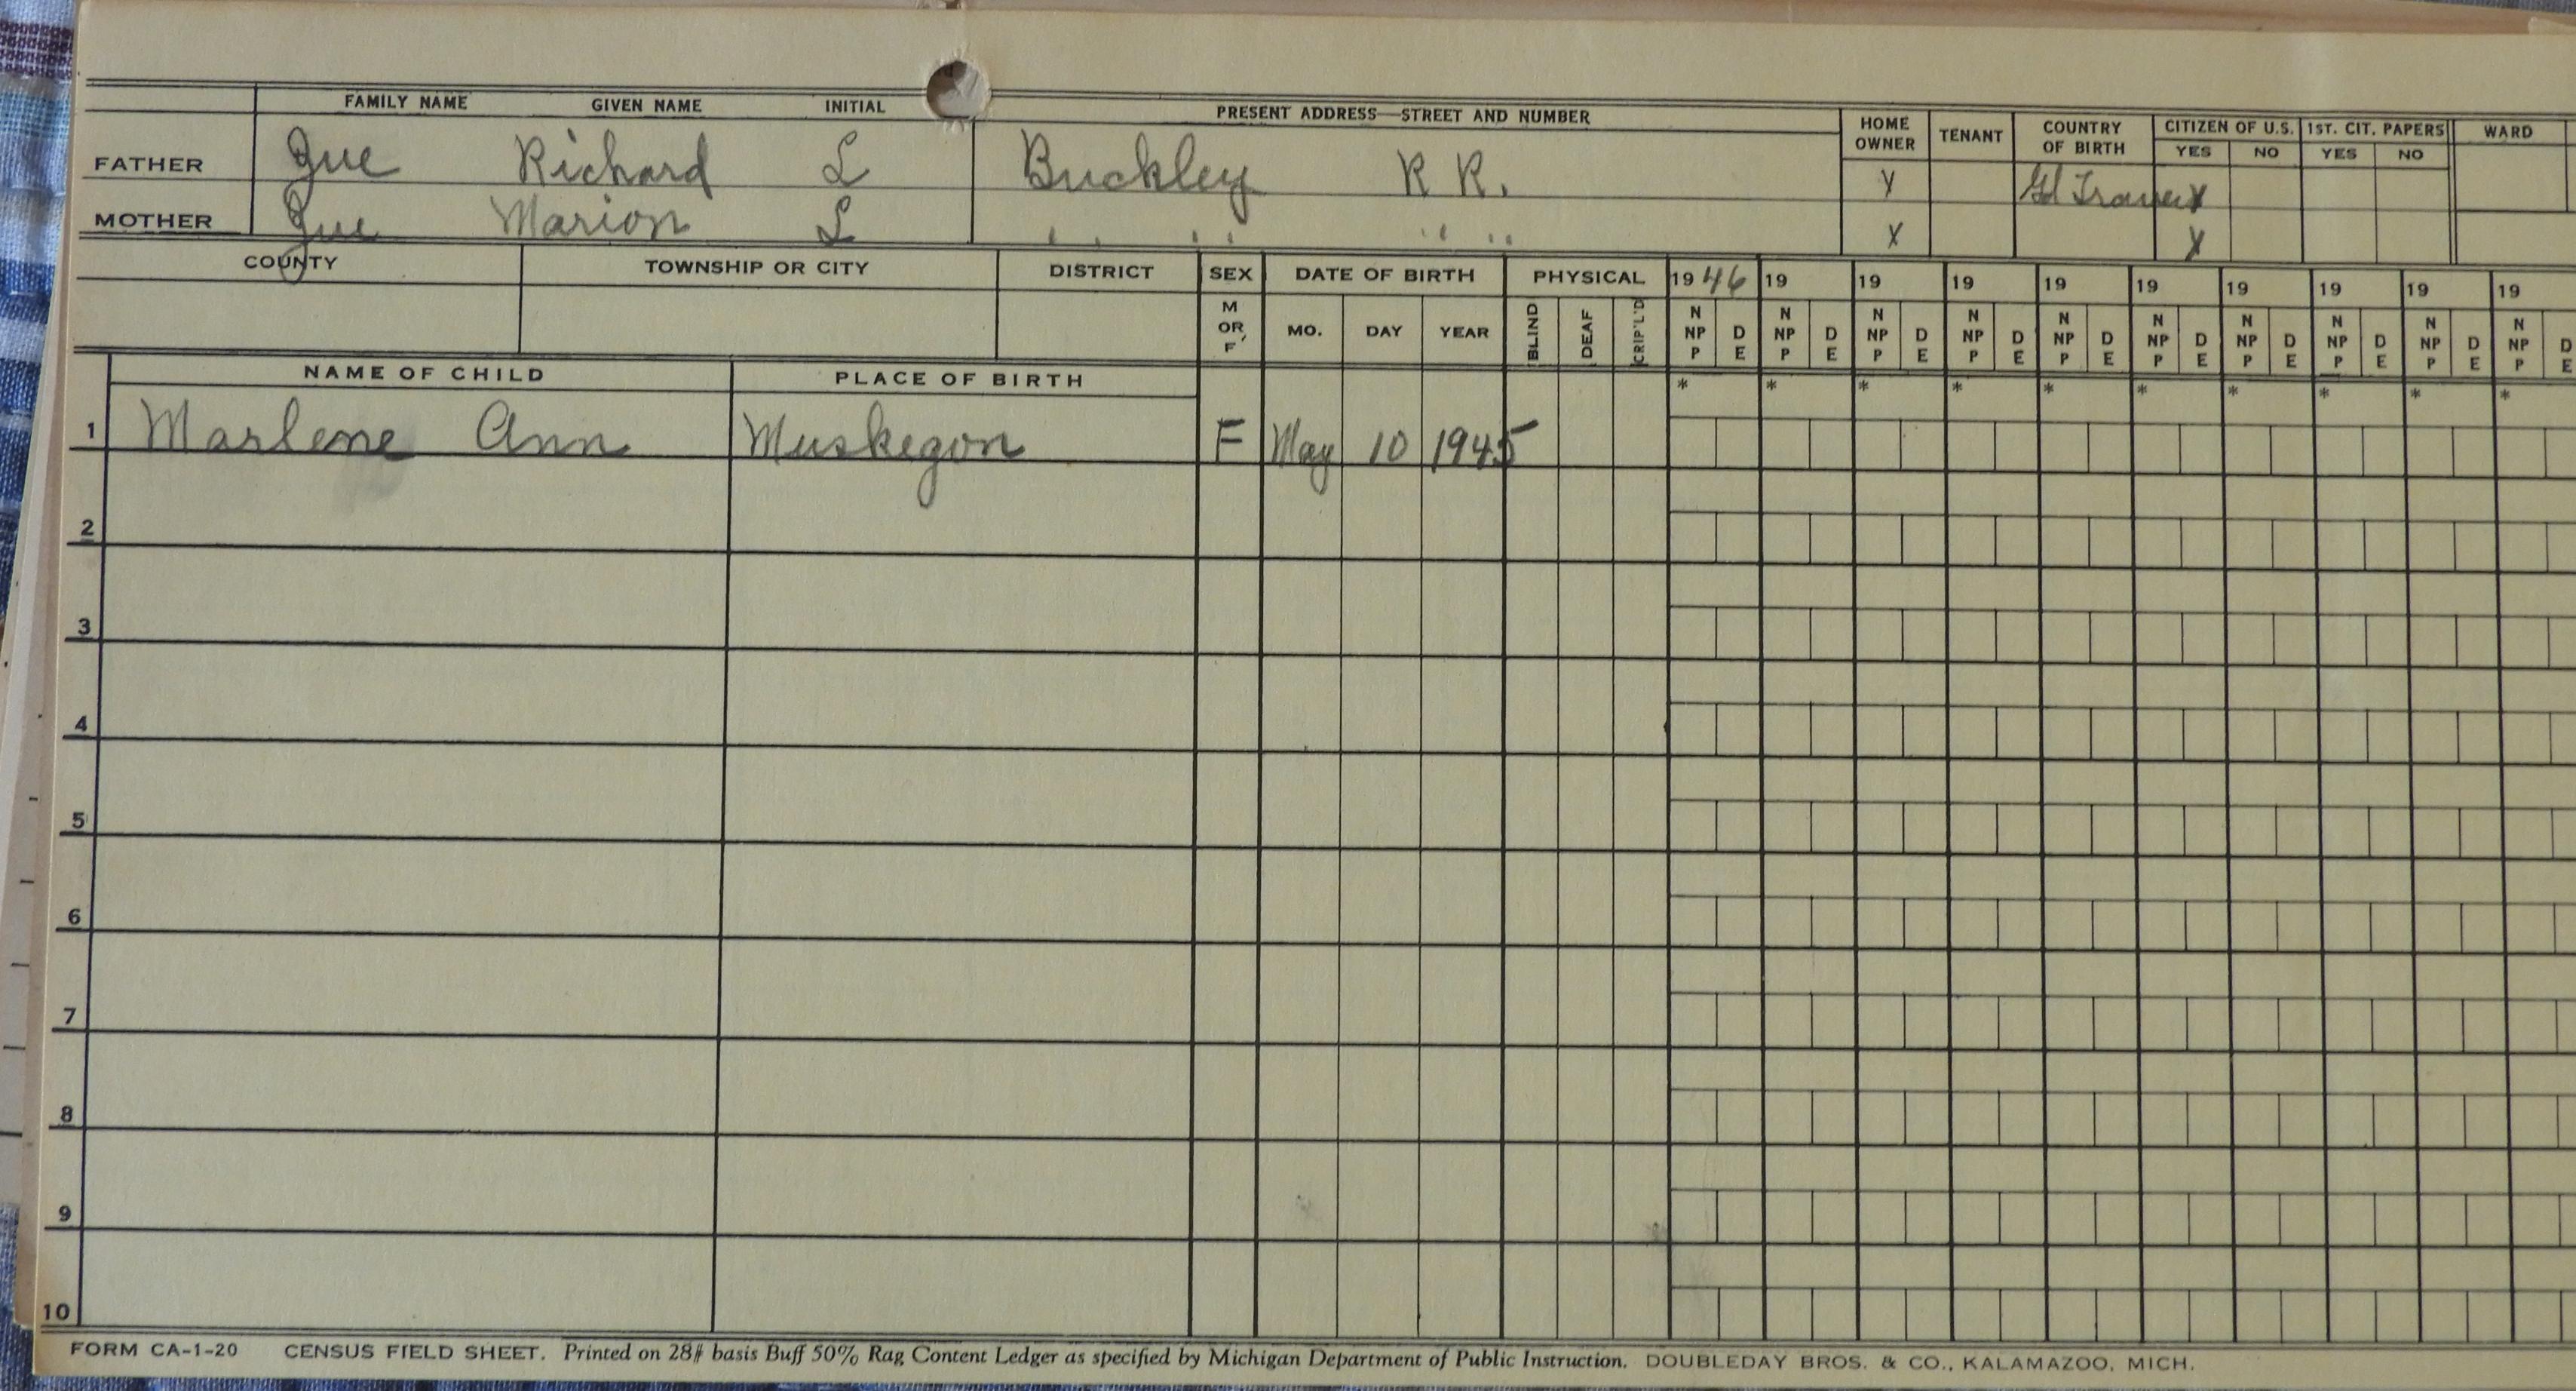 FAMILY NAME GIVEN NAME INITIAL PRESENT ADDRESS—STREET AND NUMBER HOME OWNER TENANT COUNTRY OF BIRTH CITIZEN OF U.S. 1ST. CIT. PAPERS WARD
YES NO YES NO
FATHER Gue Richard L Buckley R R. Y Gd Traver X
MOTHER Gue Marion L " " " " X X
COUNTY TOWNSHIP OR CITY DISTRICT SEX DATE OF BIRTH PHYSICAL 1946 19 19 19 19 19 19 19 19 19
M OR F MO. DAY YEAR BLIND DEAF CRIP'L'D N NP P D E N NP P D E N NP P D E N NP P D E N NP P D E N NP P D E N NP P D E N NP P D E N NP P D E N NP P D E
NAME OF CHILD PLACE OF BIRTH * * * * * * * * * *
1 Marlene Ann Muskegon F May 10 1945
2
3
4
5
6
7
8
9
10
FORM CA-1-20 CENSUS FIELD SHEET. Printed on 28# basis Buff 50% Rag Content Ledger as specified by Michigan Department of Public Instruction. DOUBLEDAY BROS. & CO., KALAMAZOO, MICH.